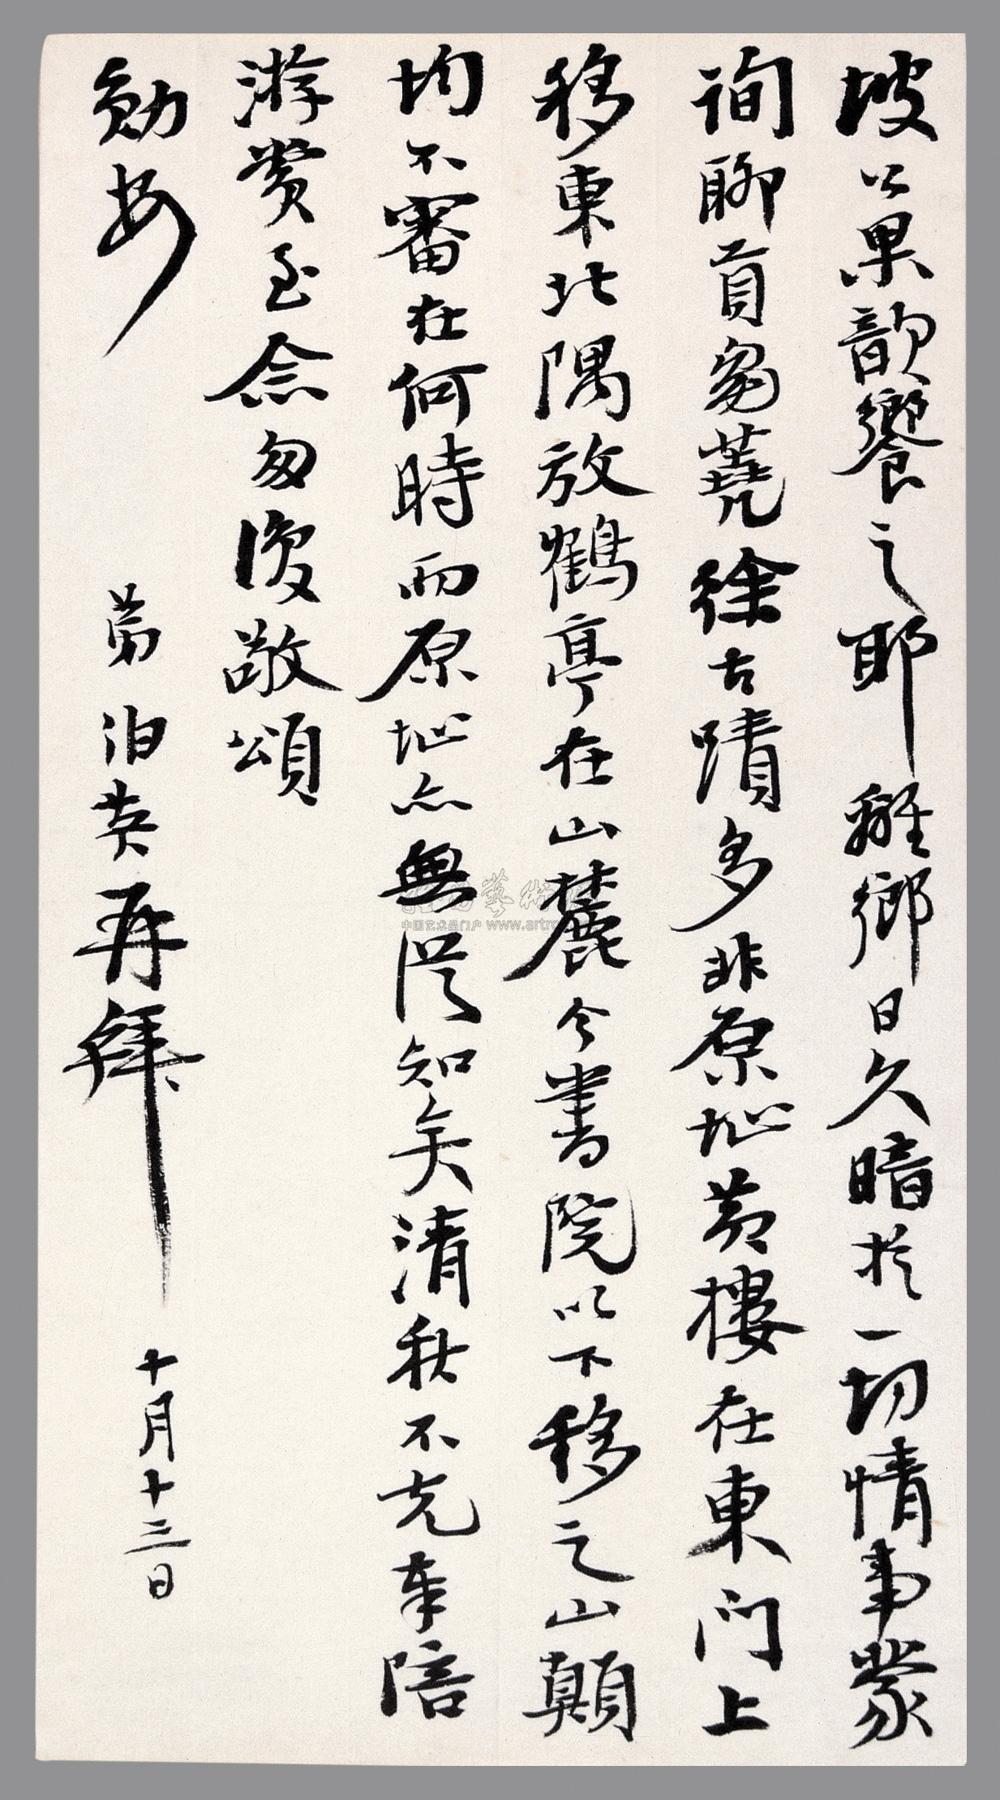 坡公果歆饗之耶離鄉日久暗於一切情事蒙
詢聊貢芻蕘徐古蹟多多非原址黃樓在東門上
移東北隅放鶴亭在山麓今書院以下移之山顛
均不審在何時而原址亦無從知矣清秋不克奉陪
游賞至念匆復敬頌
勛安
弟泊英再拜
十月十三日
中国艺术品门户 www.artro